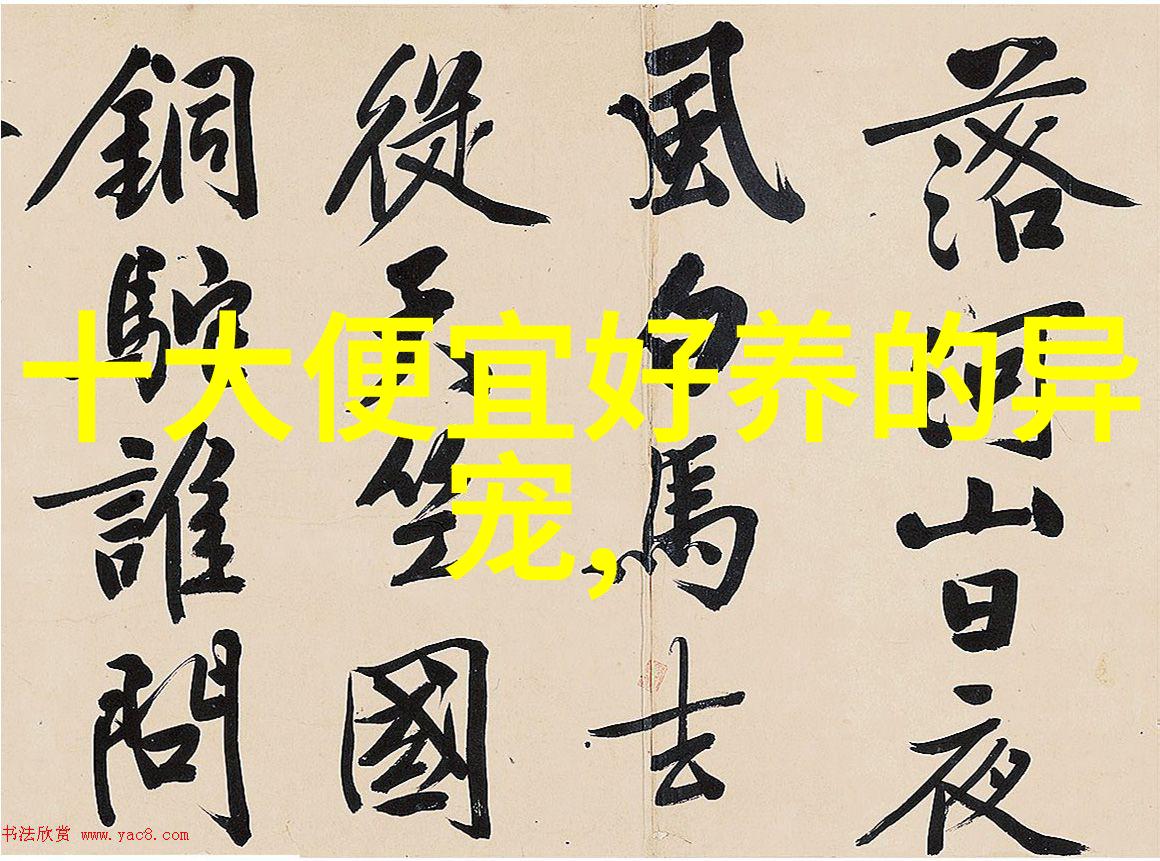 落河山日夜
風白馬去
從天竺國
銅駝誰問
十大便宜好养的异
宠,
书法欣赏 www.yac8.com